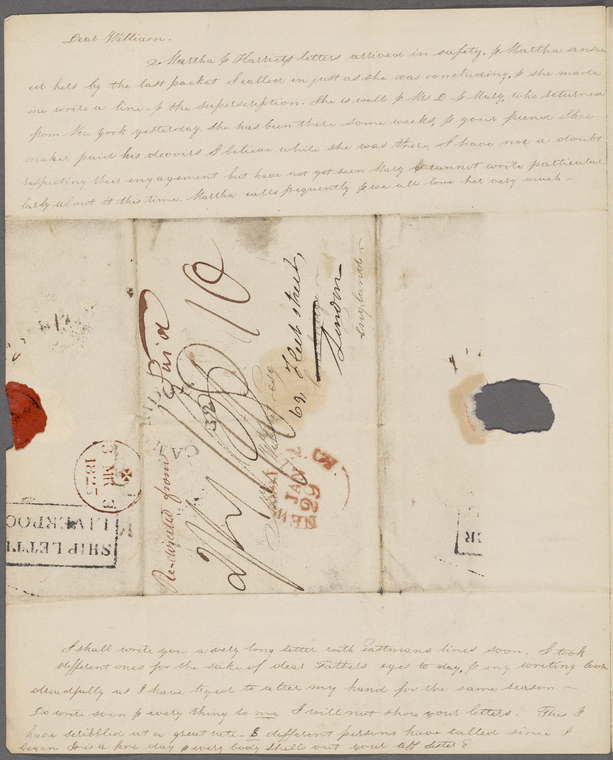 Dear William.
& Martha & Harriets letters arrived in safety, & Martha answer
ed hers by the last packet I called in just as she was concluding, & she made
me write a line & the superscription. She is well & Mrs D & Mary, who returned
from New York yesterday she has been there some weeks, & your friend Shoe-
maker paid his devoirs I believe while she was there, I have not a doubt
respecting their engagement but have not yet seen Mary & cannot write particu
larly about it this time. Martha calls frequently & we all love her very much —
Re-directed from Paid
10
32
Esq
69, Fleet street,
London
England
NEW YORK
JAN
29
3 MR 3
1825
SHIP LETTER
LIVERPOOL
I shall write you a very long letter with Eastmans lines soon. I took
different ones for the sake of dear Fathers eyes to day, & my writing looks
dreadfully as I have tryed to alter my hand for the same reason —
Do write soon & every thing to me I will not show your letters. This I
have scribbled at a great rate. 8 different persons have called since I
began It is a fine day & every body sheds out your aff sister E